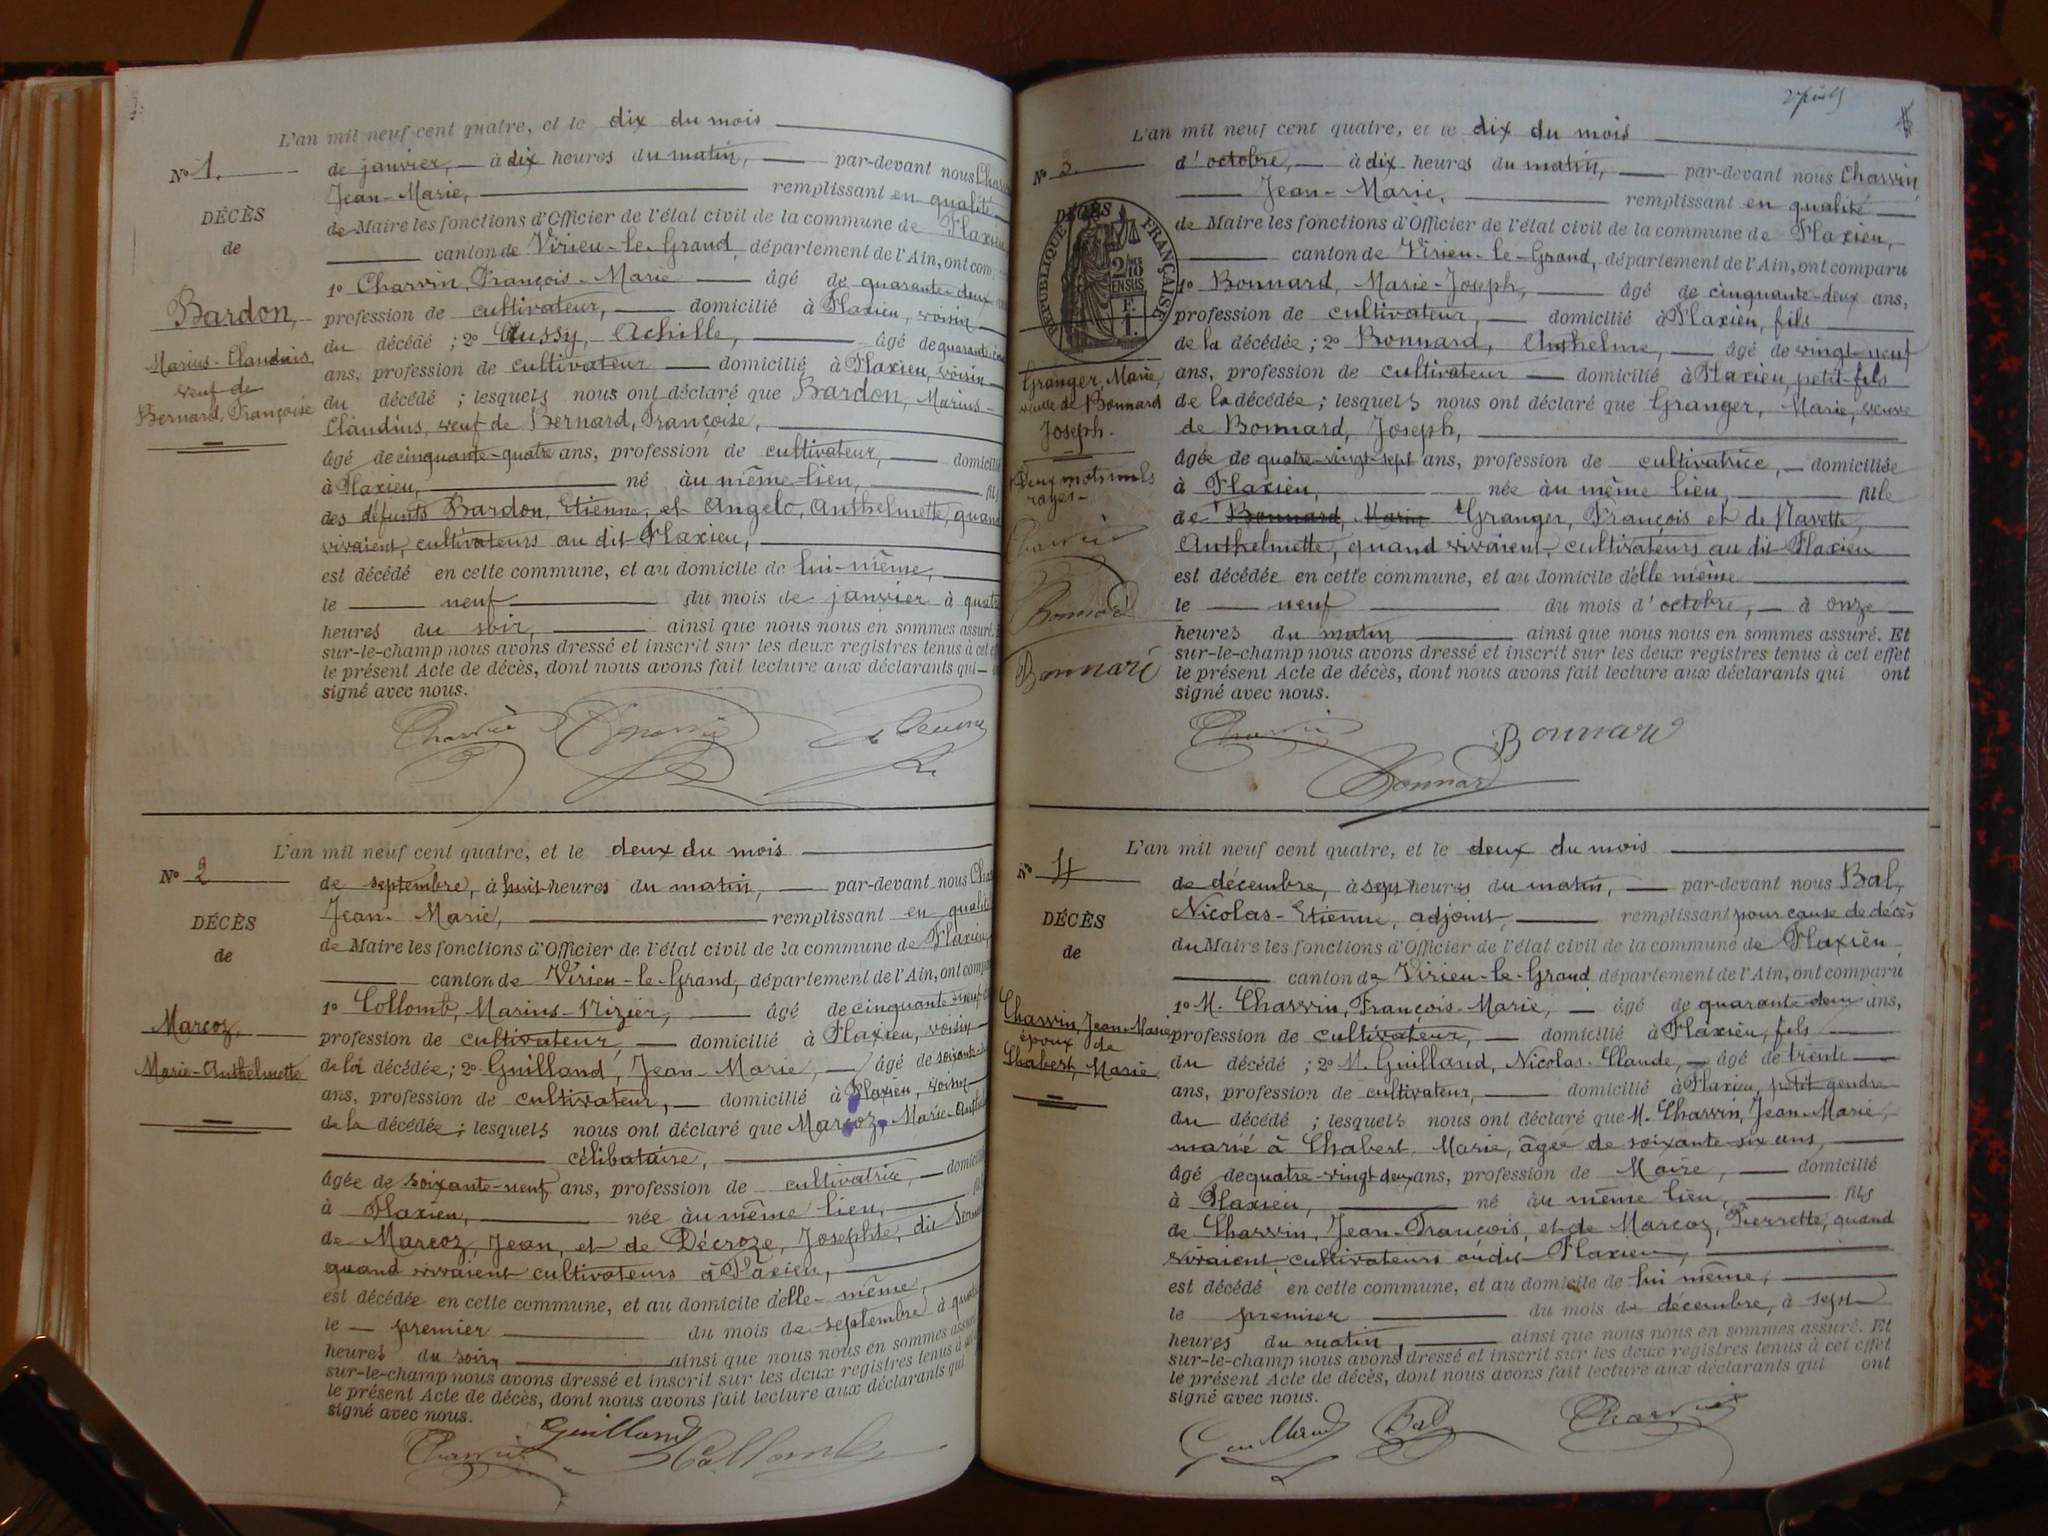 L'an mil neuf cent quatre, et le dix du mois
N° 1.
de janvier, à dix heures du matin, par-devant nous
Jean-Marie, remplissant en qualité
DÉCÈS
de
de Maire les fonctions d'Officier de l'état civil de la commune de Flaxieu
canton de Virieu-le-Grand, département de l'Ain, ont
1° Charvin, François-Marie âgé de quarante-deux
Bardon,
profession de cultivateur, domicilié à Flaxieu, voisin
du décédé ; 2° Cussy, Achille, âgé de
Marius-Claudius,
ans, profession de cultivateur domicilié à Flaxieu, voisin
veuf de
Bernard, Françoise
du décédé ; lesquels nous ont déclaré que Bardon, Marius-
Claudius, veuf de Bernard, Françoise,
âgé de cinquante-quatre ans, profession de cultivateur, domicilié
à Flaxieu, né au même lieu, fils
des défunts Bardon, Etienne, et Angelo, Anthelmette, quand
vivaient, cultivateurs au dit Flaxieu,
est décédé en cette commune, et au domicile de lui-même,
le neuf du mois de janvier à
heures du soir, ainsi que nous nous en sommes assuré.
sur-le-champ nous avons dressé et inscrit sur les deux registres tenus à cet
le présent Acte de décès, dont nous avons fait lecture aux déclarants qui
signé avec nous.
Charvin
L'an mil neuf cent quatre, et le deux du mois
N° 2
de septembre, à huit heures du matin, par-devant nous
Jean-Marie, remplissant en qualité
DÉCÈS
de
de Maire les fonctions d'Officier de l'état civil de la commune de Flaxieu,
canton de Virieu-le-Grand, département de l'Ain, ont
1° Collomb, Marius-Nizier, âgé de cinquante-neuf
Marcoz,
profession de cultivateur, domicilié à Flaxieu, voisin
Marie-Anthelmette
de la décédée ; 2° Guilland, Jean-Marie, âgé de
ans, profession de cultivateur, domicilié à Flaxieu, voisin
de la décédée ; lesquels nous ont déclaré que Marcoz, Marie-
célibataire,
âgée de soixante-neuf ans, profession de cultivatrice, domiciliée
à Flaxieu, née au même lieu,
de Marcoz, Jean, et de Décroze, Josephte, dit
quand vivaient cultivateurs à Flaxieu,
est décédée en cette commune, et au domicile d'elle-même,
le premier du mois de septembre à
heures du soir, ainsi que nous nous en sommes
sur-le-champ nous avons dressé et inscrit sur les deux registres tenus à
le présent Acte de décès, dont nous avons fait lecture aux déclarants qui
signé avec nous.
Charvin Guilland Collomb
L'an mil neuf cent quatre, et le dix du mois
N° 3
d'octobre, à dix heures du matin, par-devant nous Charvin,
Jean-Marie, remplissant en qualité
DÉCÈS
RÉPUBLIQUE FRANÇAISE
de Maire les fonctions d'Officier de l'état civil de la commune de Flaxieu,
canton de Virieu-le-Grand, département de l'Ain, ont comparu
1° Bonnard, Marie-Joseph, âgé de cinquante-deux ans,
profession de cultivateur, domicilié à Flaxieu, fils
de la décédée ; 2° Bonnard, Anthelme, âgé de vingt-neuf
Granger, Marie,
veuve de Bonnard
Joseph.
ans, profession de cultivateur domicilié à Flaxieu, petit-fils
de la décédée ; lesquels nous ont déclaré que Granger, Marie, veuve
de Bonnard, Joseph,
âgée de quatre-vingt-sept ans, profession de cultivatrice, domiciliée
Deux mots nuls
rayés
à Flaxieu, née au même lieu, fille
de Bonnard, Marie Granger, François et de Navette,
Anthelmette, quand vivaient, cultivateurs au dit Flaxieu
Charvin
Bonnard
Bonnard
est décédée en cette commune, et au domicile d'elle même
le neuf du mois d'octobre, à onze
heures du matin ainsi que nous nous en sommes assuré. Et
sur-le-champ nous avons dressé et inscrit sur les deux registres tenus à cet effet
le présent Acte de décès, dont nous avons fait lecture aux déclarants qui ont
signé avec nous.
Charvin Bonnard
Bonnard
L'an mil neuf cent quatre, et le deux du mois
N° 4
de décembre, à sept heures du matin, par-devant nous Bal,
Nicolas-Etienne, adjoint, remplissant pour cause de décès
DÉCÈS
de
du Maire les fonctions d'Officier de l'état civil de la commune de Flaxieu
canton de Virieu-le-Grand, département de l'Ain, ont comparu
1° M. Charvin, François-Marie, âgé de quarante-deux ans,
Charvin, Jean-Marie
époux de
Chabert, Marie
profession de cultivateur, domicilié à Flaxieu, fils
du décédé ; 2° M. Guilland, Nicolas-Claude, âgé de trente
ans, profession de cultivateur, domicilié à Flaxieu, petit-gendre
du décédé ; lesquels nous ont déclaré que M. Charvin, Jean-Marie,
marié à Chabert, Marie, âgée de soixante-six ans,
âgé de quatre-vingt-deux ans, profession de Maire, domicilié
à Flaxieu, né au même lieu, fils
de Charvin, Jean-François, et de Marcoz, Pierrette, quand
vivaient, cultivateurs au dit Flaxieu,
est décédé en cette commune, et au domicile de lui même,
le premier du mois de décembre, à sept
heures du matin, ainsi que nous nous en sommes assuré. Et
sur-le-champ nous avons dressé et inscrit sur les deux registres tenus à cet effet
le présent Acte de décès, dont nous avons fait lecture aux déclarants qui ont
signé avec nous.
Guilland Bal Charvin